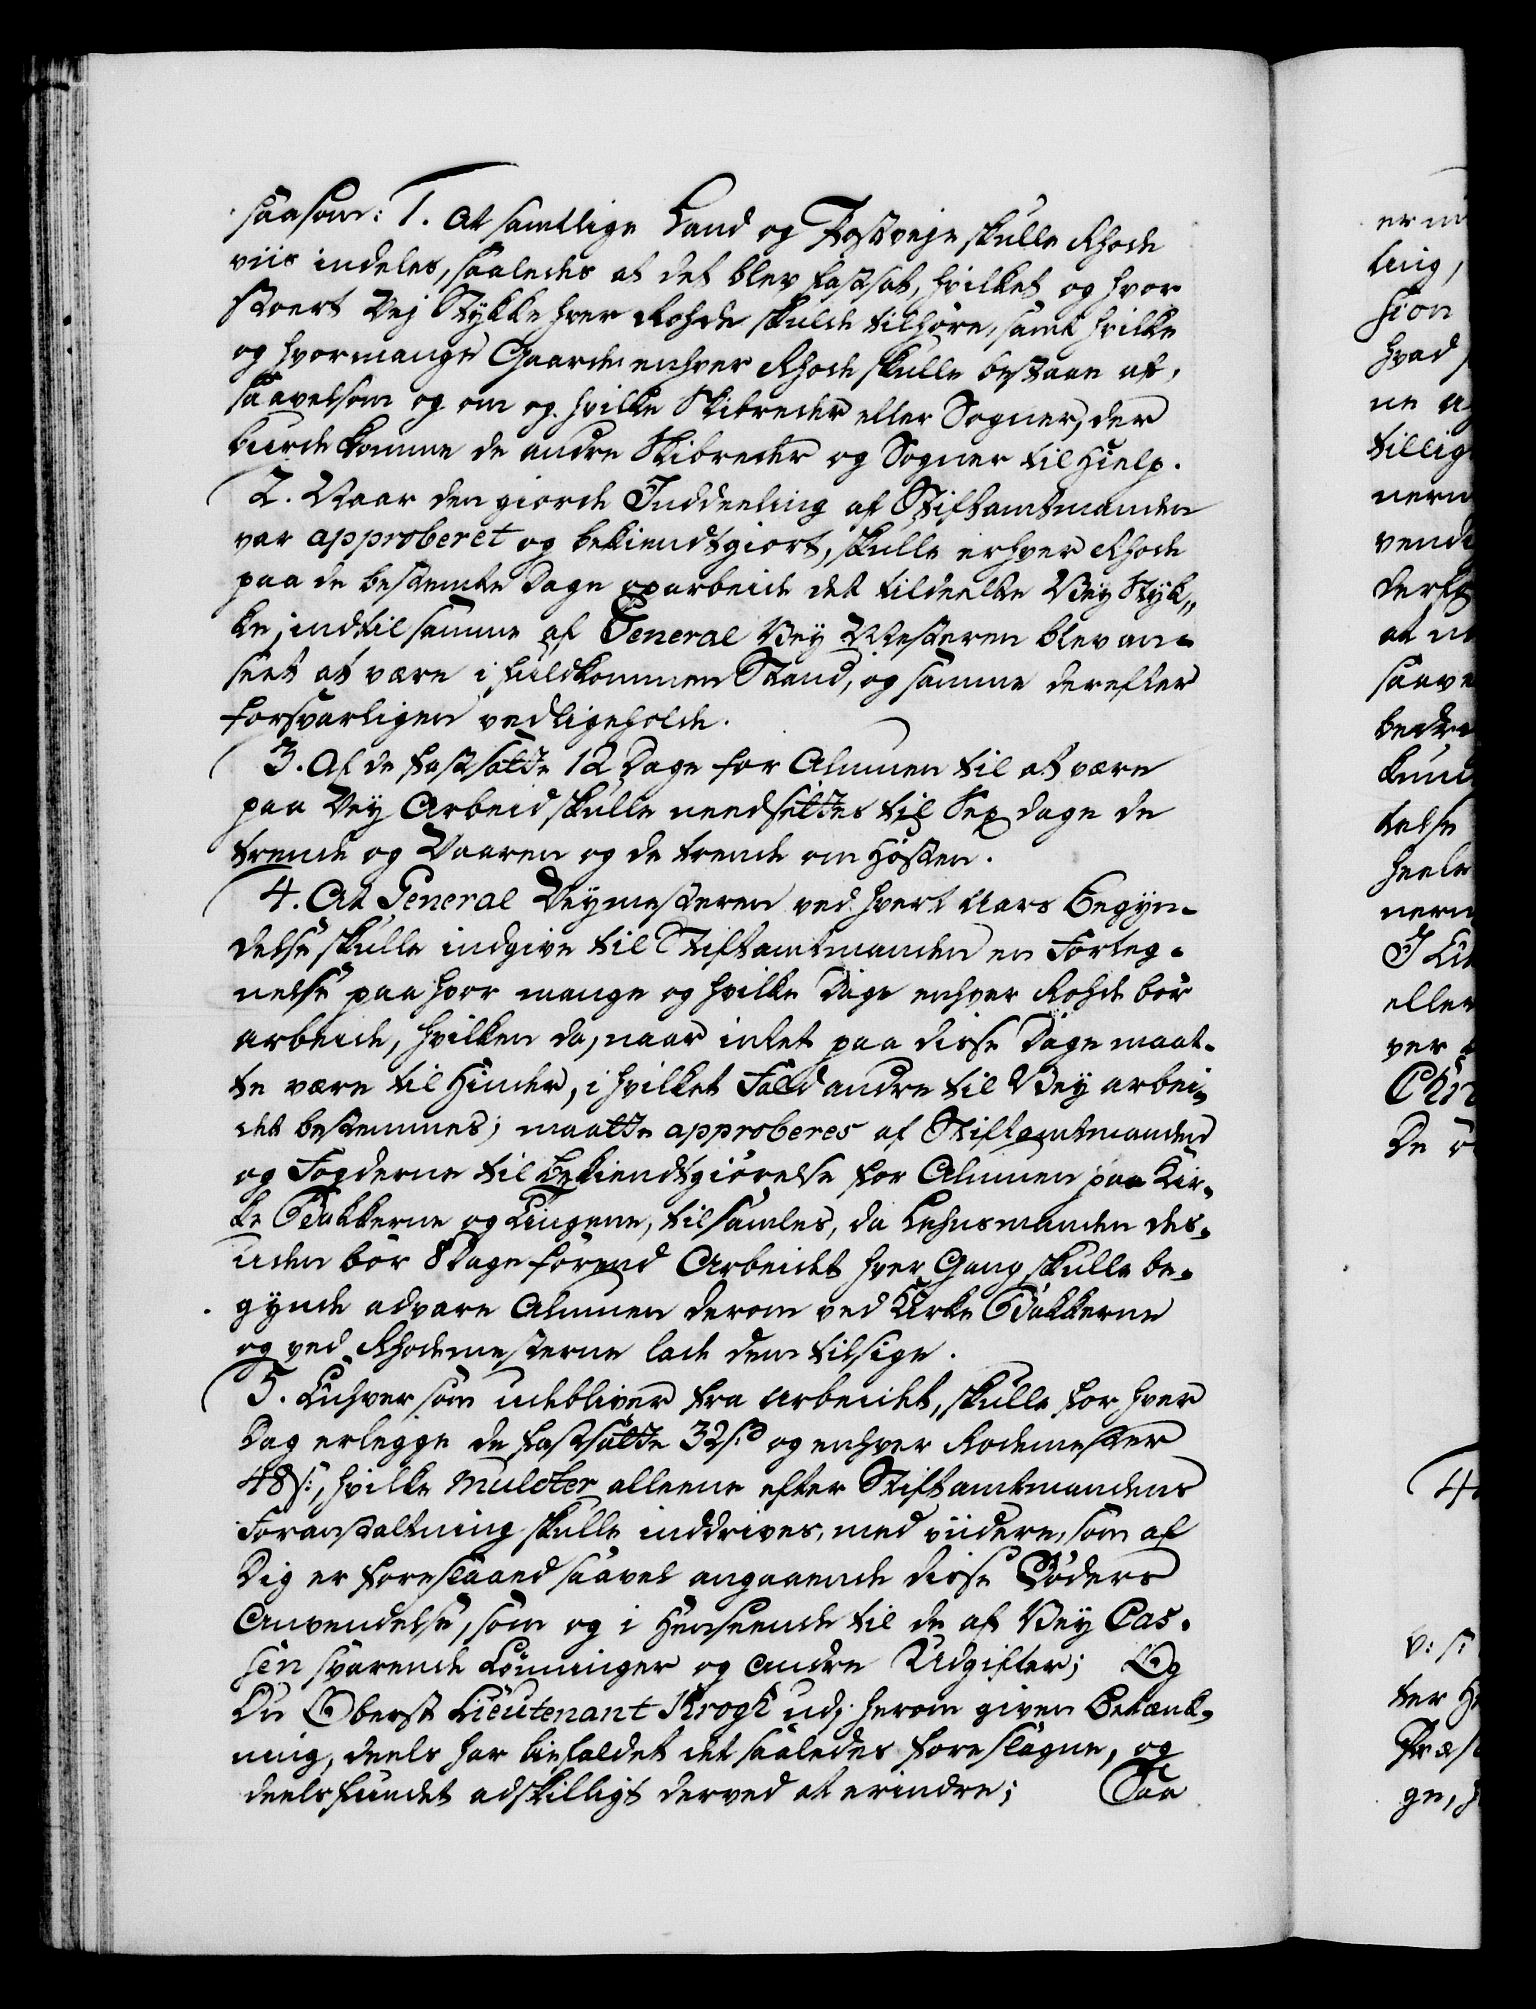 saasom: 1. At samtlige Land og Postveje skulle Rhode
viis indeles, saaledes at det blev fastsat, hvilket og hvor
stoert Vej Stykke hver Rohde skulde tilhöre, samt hvilke
og hvormange Gaarde enhver Rhode skulle bestaae af,
saavelsom og om og hvilke Skibreder eller Sogner, der
burde komme de andre Skibreder og Sogner til Hielp.
2. Naar den giorde Inddeeling af Stiftamtmanden
var approberet og bekiendtgiort, skulle enhver Rhode
paa de bestemte Dage oparbeide det tildeelte Vey Styk„
ke, indtil samme af General Vey Mesteren blev an-
seet at være i fuldkommen Stand, og samme derefter
forsvarligen vedligeholde.
3. Af de fastsatte 12 Dage for Almuen til at være
paa Vey Arbeid skulle needsettes til Sex dage de
trende og Vaaren og de trende om Høsten.
4. At General Veymesteren ved hvert Aars Begyn-
delse skulle indgive til Stiftamtmanden en Forteg-
nelse paa hvor mange og hvilke Dage enhver Rohde bör
arbeide, hvilken da, naar intet paa disse Dage maat-
te være til Hinder, i hvilket Fald andre til Vey arbei-
det bestemmes; maatte approberes af Stiftamtmanden
og Fogderne til Bekiendtgiörelse for Almuen paa Kir-
ke Bakkerne og Tingene, tilsamles, da Lehnsmanden des-
uden bör 8 Dage förend Arbeidet hver Gang skulle be-
gynde advare Almuen derom ved Kirke Bakkerne
og ved Rhodemesterne lade dem tilsige.
5. Enhver som udebliver fra Arbeidet, skulle for hver
Dag erlegge de fastsatte 32 s: og enhver Rodemester
48 s:, hvilke Mulcter alleene efter Stiftamtmandens
Foranstaltning skulle inddrives, med viidere, som af
Dig er foreslaaed saavel angaaende disse Böders
Anvendelse, som og i Henseende til de af Vey Cas-
sen svarende Lönninger og andre Udgifter; Og
Du Oberst Lieutenant Krogh udj herom given Betænk-
ning, deels har bifaldet det saaledes foreslagne, og
deels fundet adskilligt derved at erindre; Saa